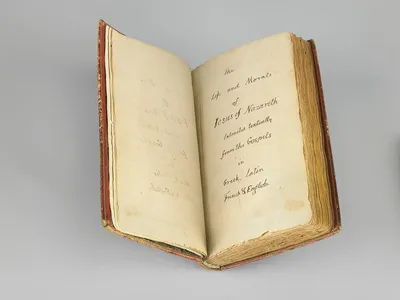 The
Life and Morals
of
Jesus of Nazareth
Extracted textually
from the Gospels
in
Greek, Latin
French & English.